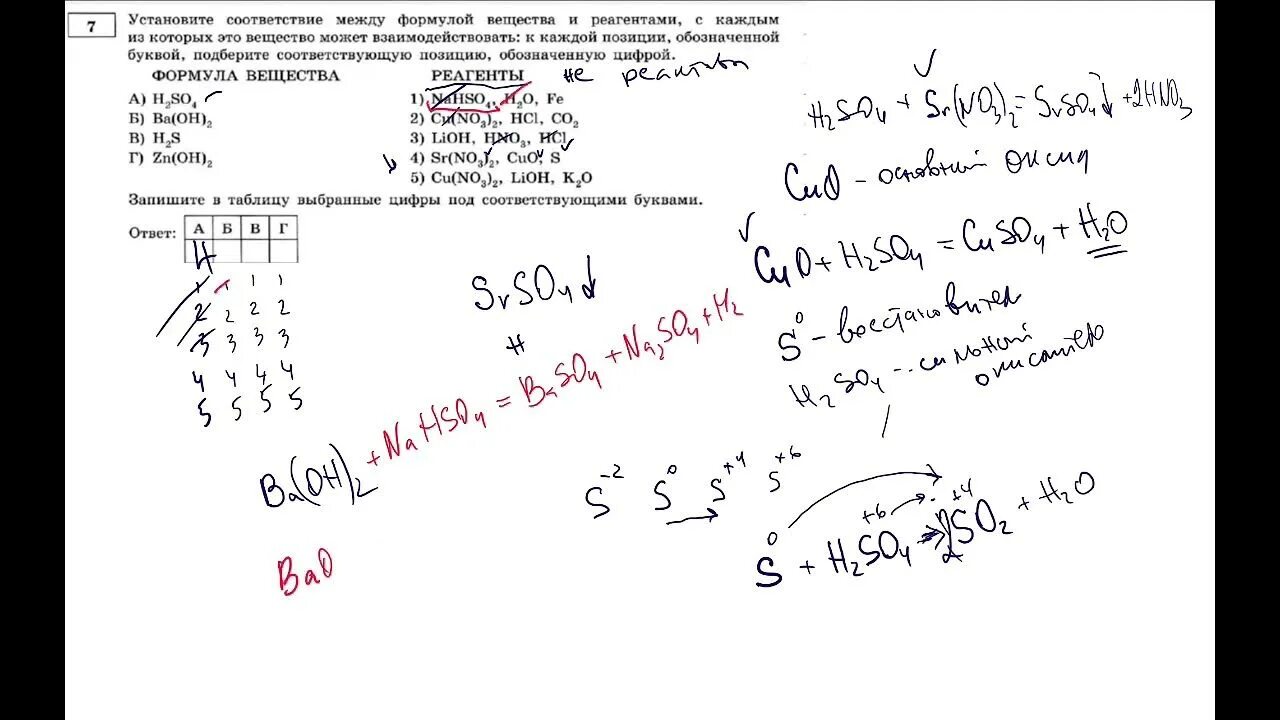 7
Установите соответствие между формулой вещества и реагентами, с каждым
из которых это вещество может взаимодействовать: к каждой позиции, обозначенной
буквой, подберите соответствующую позицию, обозначенную цифрой.
ФОРМУЛА ВЕЩЕСТВА РЕАГЕНТЫ не реактивы
А) H₂SO₄ 1) NaHSO₄, H₂O, Fe
Б) Ba(OH)₂ 2) Cu(NO₃)₂, HCl, CO₂
В) H₂S 3) LiOH, HNO₃, HCl
Г) Zn(OH)₂ 4) Sr(NO₃)₂, CuO, S
5) Cu(NO₃)₂, LiOH, K₂O
Запишите в таблицу выбранные цифры под соответствующими буквами.
Ответ: А Б В Г
4
1 1 1 1
2 2 2 2
3 3 3 3
4 4 4 4
5 5 5 5
H₂SO₄ + Sr(NO₃)₂ = SrSO₄↓ + 2HNO₃
CuO - основный оксид
CuO + H₂SO₄ = CuSO₄ + H₂O
S⁰ - восстановител
H₂SO₄ - сильный
окислитель
SrSO₄↓
Ba(OH)₂ + NaHSO₄ = BaSO₄ + Na₂SO₄ + H₂
BaO
S⁻² S⁰ S⁺⁴ S⁺⁶
S⁰ + H₂S⁺⁶O₄ → 2S⁺⁴O₂ + H₂O